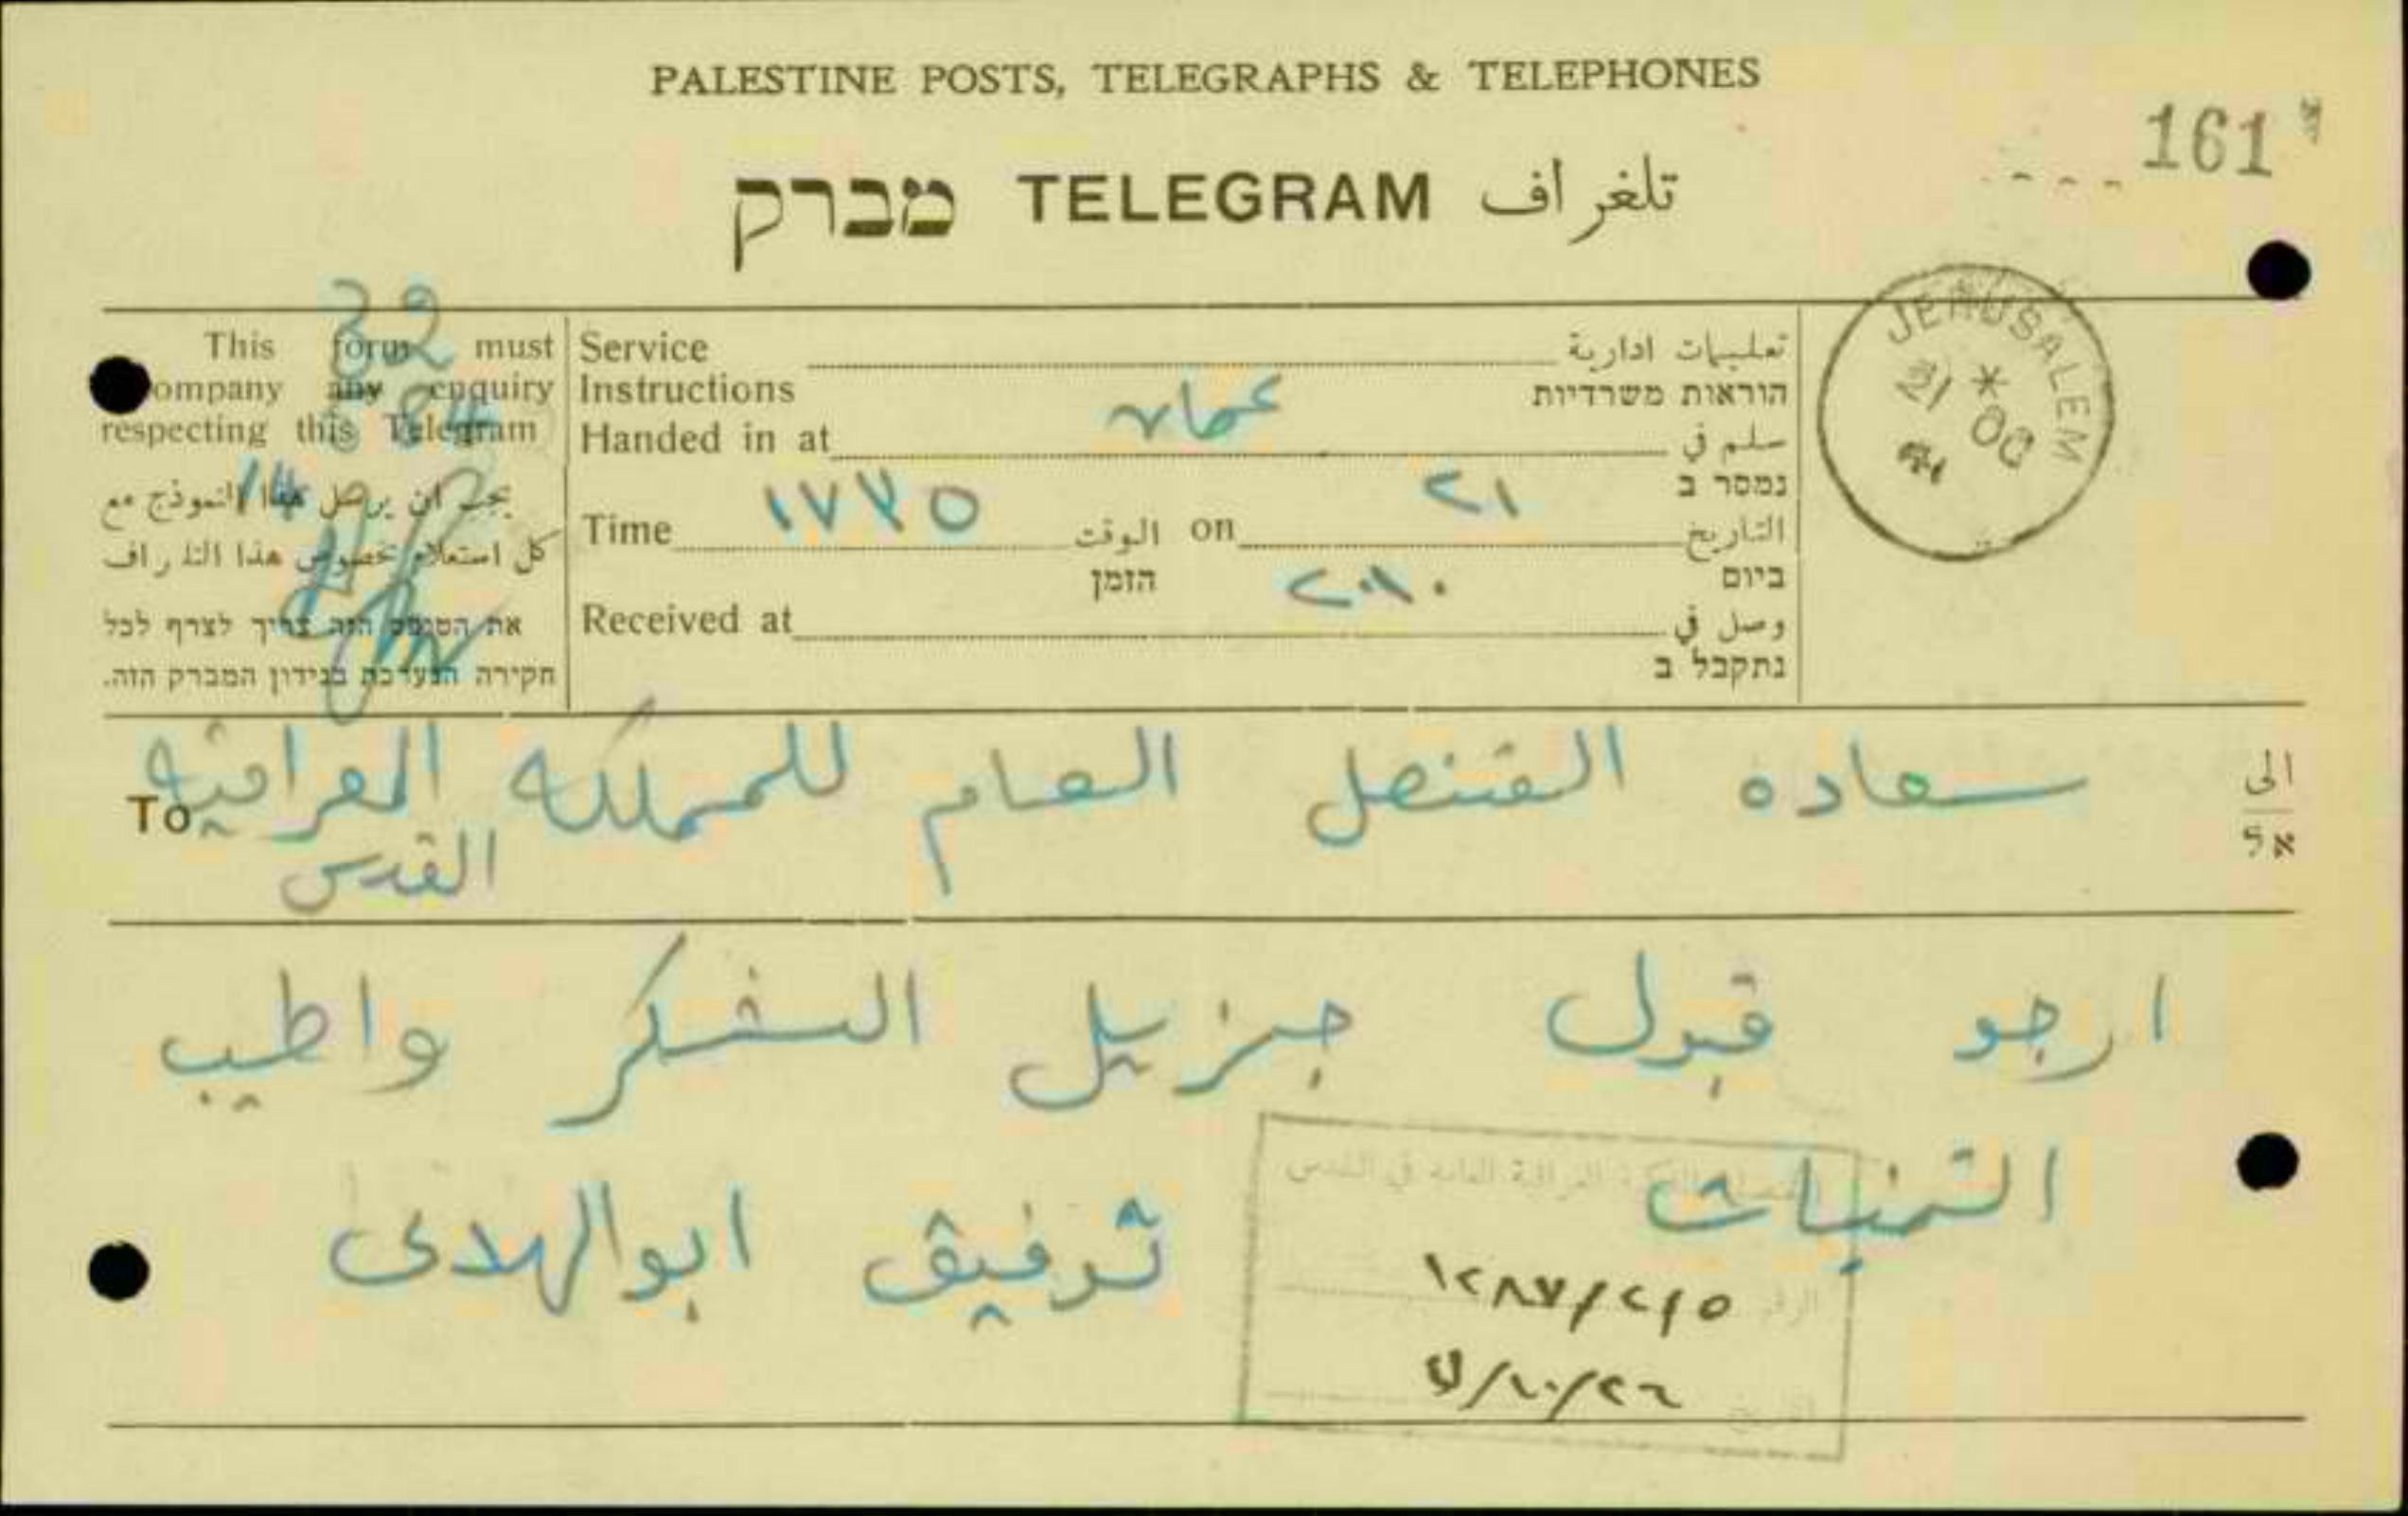 PALESTINE POSTS, TELEGRAPHS & TELEPHONES
161
מברק TELEGRAM تلغراف
This form must
ompany any enquiry
respecting this Telegram
يجب ان يرسل هذا النموذج مع
كل استعلام بخصوص هذا التلغراف
את הטופס הזה צריך לצרף לכל
חקירה הנערכת בנידון המברק הזה.
32
14
Service
Instructions
تعليمات ادارية
הוראות משרדיות
Handed in at عمان سلم في
נמסר ב
Time ١٧٣٥ الوقت on ٢١ التاريخ
הזמן
ביום
Received at ٢٠١٠ وصل في
נתקבל ב
JERUSALEM
21
OC
To
الى
אל
سعاده القنصل العام للمملكه العراقيه
القدس
ارجو قبول جزيل الشكر واطيب
التمنيات
توفيق ابوالهدى
العراقية العامة في القدس
الرقم ١٢٨٧/٢/٥